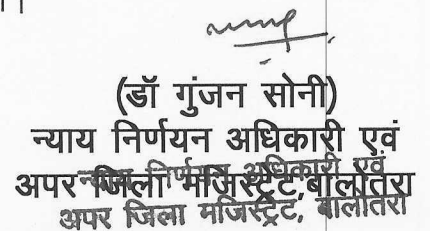 (डॉ गुंजन सोनी)
न्याय निर्णयन अधिकारी एवं
अपर जिला मजिस्ट्रेट, बालोतरा
न्याय निर्णयन अधिकारी एवं
अपर जिला मजिस्ट्रेट, बालोतरा